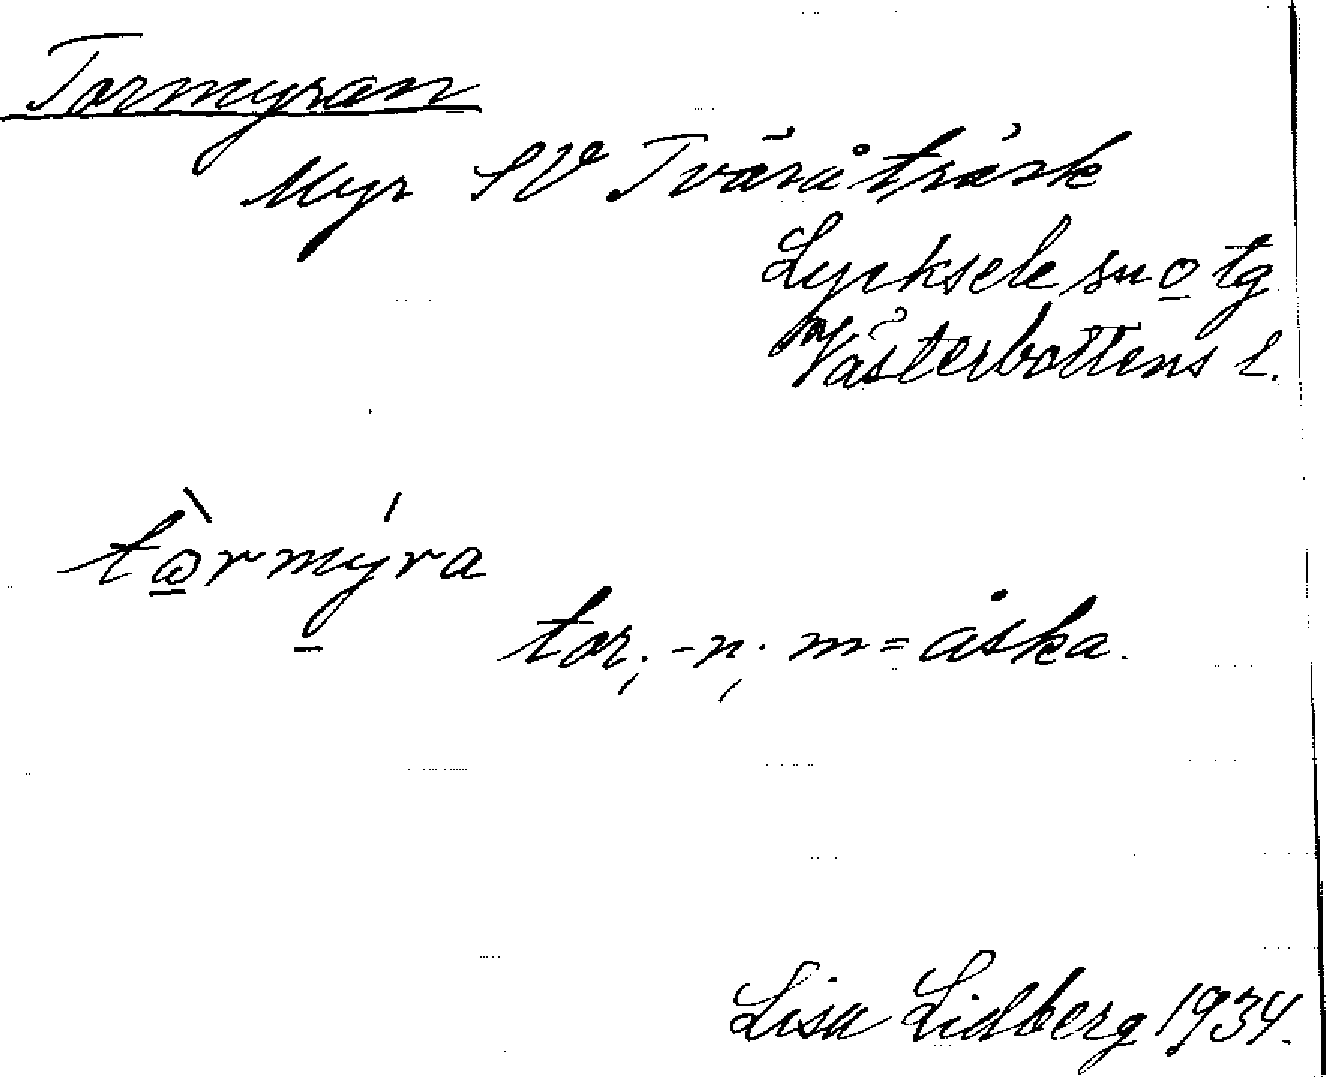 Tormyran
Myr SV Tväråträsk
Lycksele sn o tg
Västerbottens l.
tòrmýra
tor, -n, m = åska.
Lisa Lidberg 1934.